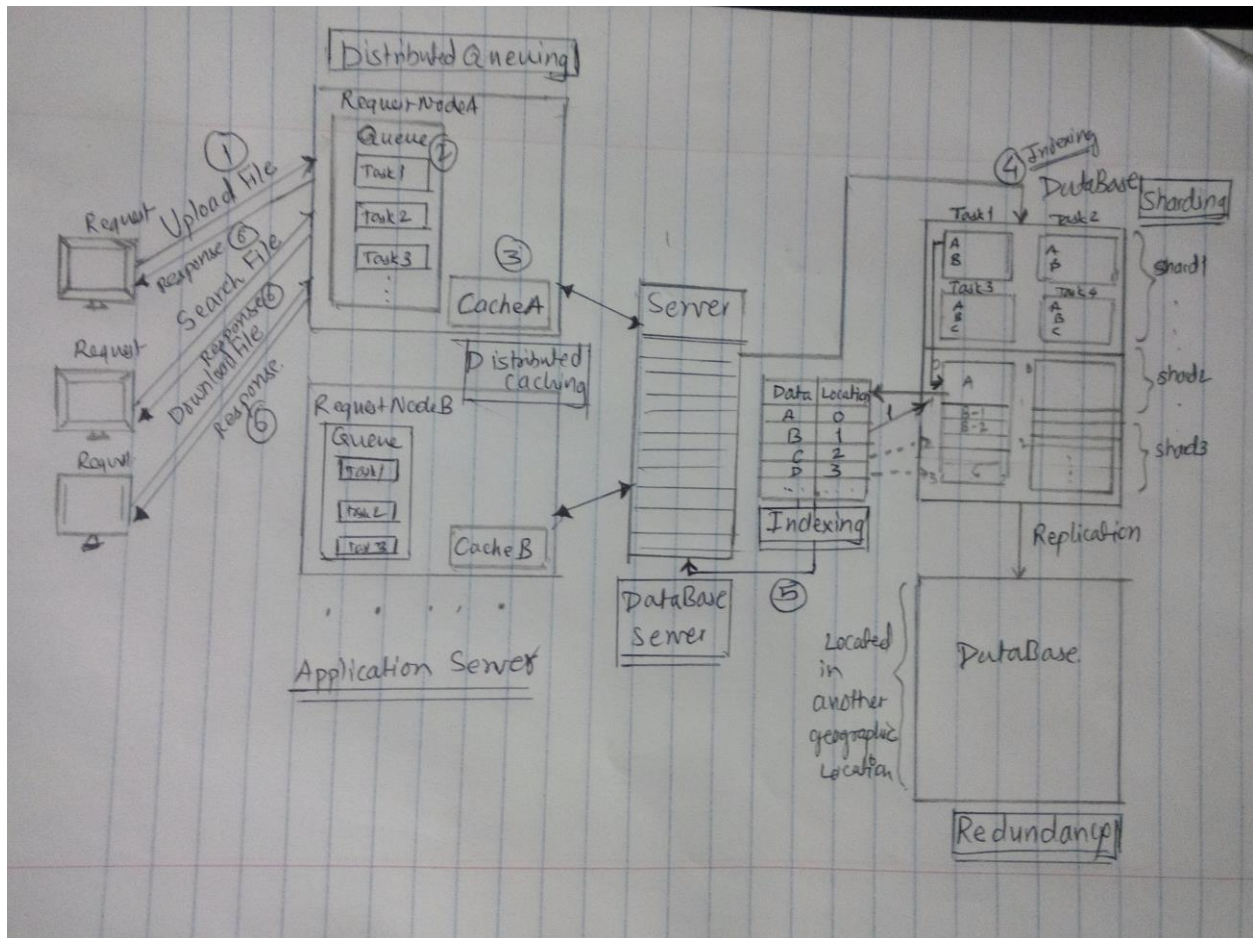 Distributed Queuing
RequestNodeA
Queue
2
Task1
Task2
Task3
3
CacheA
Distributed
Caching
1
Request
Upload File
Response 6
Search File
Request
Response 6
Download File
Response
6
Request
RequestNodeB
Queue
Task1
Task2
Task3
CacheB
Application Server
Server
DataBase
Server
Data Location
A 0
B 1
C 2
D 3
Indexing
5
1
4 Indexing
DataBase
Sharding
Task1 Task2
A
B
A
B
Task3 Task4
A
B
C
A
B
C
shard1
0
A
B-1
B-2
shard2
shard3
2
3
C
Replication
Located
in
another
geographic
Location
DataBase
Redundancy